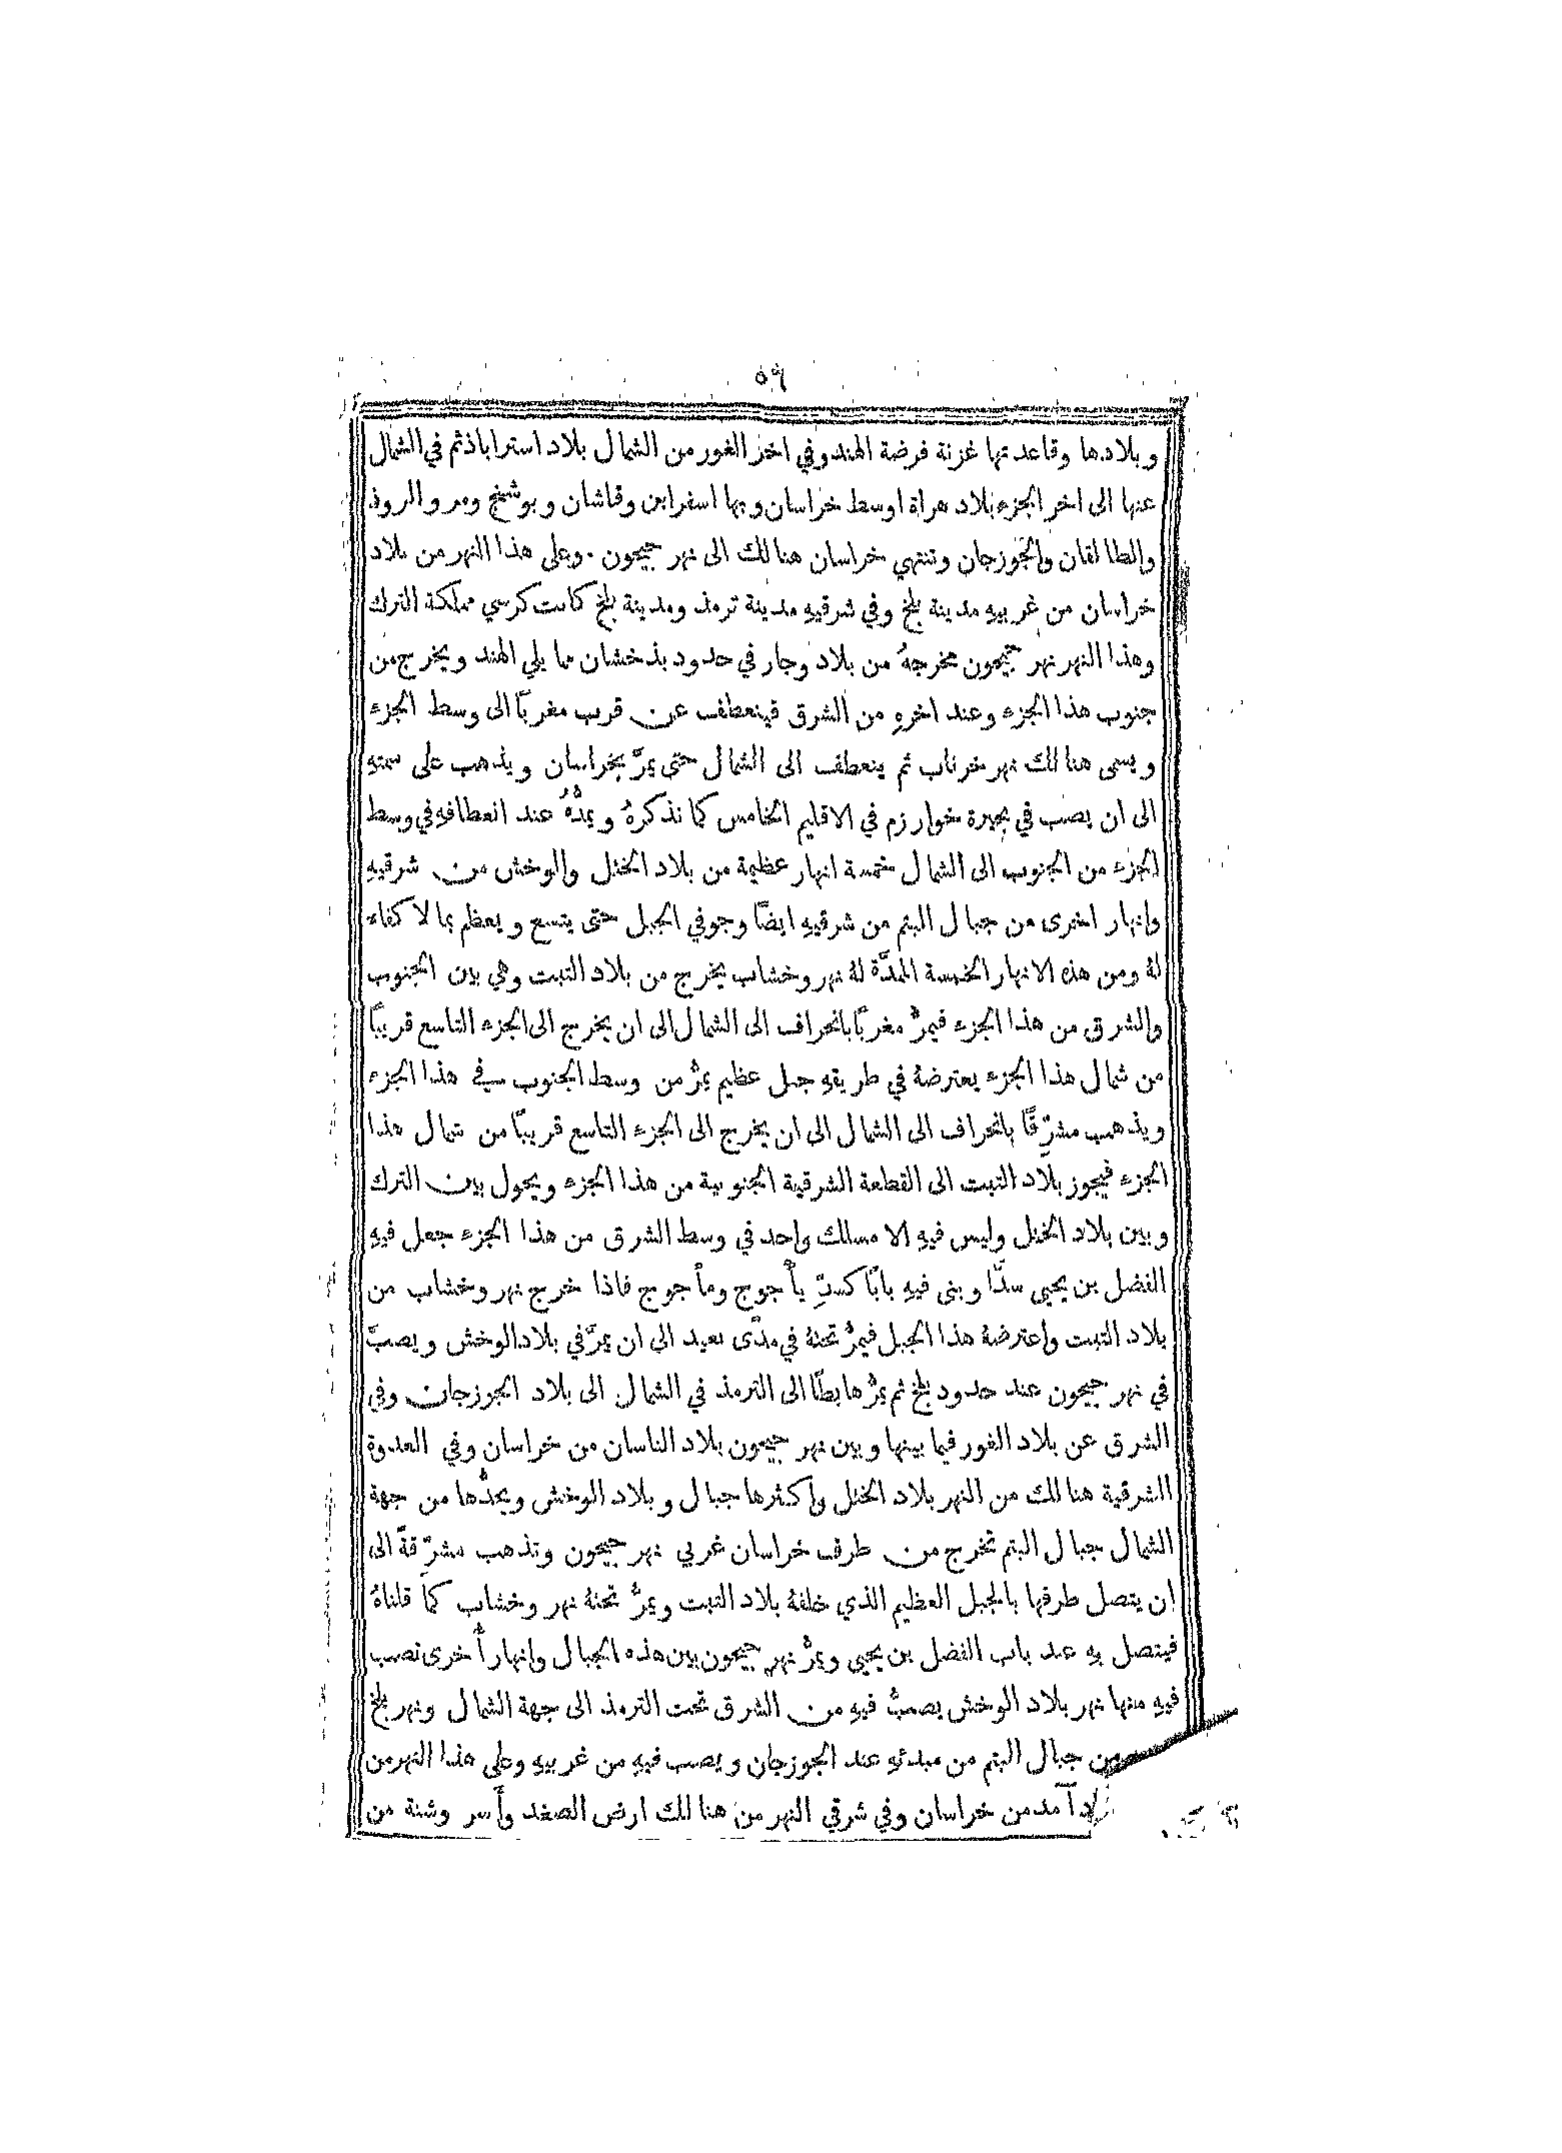 ٥٦
وبلادها وقاعدتها غزنة فرضة الهند وفي اخر الغور من الشمال بلاد استراباذ ثم في الشمال
عنها الى اخر الجزء بلاد هراة اوسط خراسان وبها اسفراين وقاشان وبوشنج ومرو الروذ
والطالقان والجوزجان وتنتهي خراسان هنالك الى نهر جيحون. وعلى هذا النهر من بلاد
خراسان من غربيهِ مدينة بلخ وفي شرقيهِ مدينة ترمذ ومدينة بلخ كانت كرسي مملكة الترك
وهذا النهر نهر جيحون مخرجهُ من بلاد وجار في حدود بذخشان مما يلي الهند ويخرج من
جنوب هذا الجزء وعند اخرهِ من الشرق فينعطف عن قرب مغربًا الى وسط الجزء
ويسمى هنالك نهر خرناب ثم ينعطف الى الشمال حتى يمرَّ بخراسان ويذهب على سمتهِ
الى ان يصب في بحيرة خوارزم في الاقليم الخامس كما نذكرهُ ويمدُّهُ عند انعطافهِ في وسط
الجزء من الجنوب الى الشمال خمسة انهار عظيمة من بلاد الختل والوخش من شرقيهِ
وانهار اخرى من جبال البتم من شرقيهِ ايضًا وجوفي الجبل حتى يتسع ويعظم بما لا كفاء
لهُ ومن هذه الانهار الخمسة الممدَّة لهُ نهر وخشاب يخرج من بلاد التبت وهي بين الجنوب
والشرق من هذا الجزء فيمرُّ مغربًا بانحراف الى الشمال الى ان يخرج الى الجزء التاسع قريبًا
من شمال هذا الجزء يعترضهُ في طريقهِ جبل عظيم يمرُّ من وسط الجنوب في هذا الجزء
ويذهب مشرّقًا بانحراف الى الشمال الى ان يخرج الى الجزء التاسع قريبًا من شمال هذا
الجزء فيجوز بلاد التبت الى القطعة الشرقية الجنوبية من هذا الجزء ويحول بين الترك
وبين بلاد الختل وليس فيهِ الا مسلك واحد في وسط الشرق من هذا الجزء جعل فيهِ
الفضل بن يحيى سدًّا وبنى فيهِ بابًا كسدِّ يأجوج ومأجوج فاذا خرج نهر وخشاب من
بلاد التبت واعترضهُ هذا الجبل فيمرُّ تحتهُ في مدًى بعيد الى ان يمرَّ في بلاد الوخش ويصبَّ
في نهر جيحون عند حدود بلخ ثم يمرُّ هابطًا الى الترمذ في الشمال الى بلاد الجوزجان وفي
الشرق عن بلاد الغور فيما بينها وبين نهر جيحون بلاد الناسان من خراسان وفي العدوة
الشرقية هنالك من النهر بلاد الختل واكثرها جبال وبلاد الوخش ويحدُّها من جهة
الشمال جبال البتم تخرج من طرف خراسان غربي نهر جيحون وتذهب مشرّقةً الى
ان يتصل طرفها بالجبل العظيم الذي خلفهُ بلاد التبت ويمرُّ تحتهُ نهر وخشاب كما قلناهُ
فيتصل بهِ عند باب الفضل بن يحيى ويمرُّ نهر جيحون بين هذه الجبال وانهار أُخرى تصب
فيهِ منها نهر بلاد الوخش يصبُّ فيهِ من الشرق تحت الترمذ الى جهة الشمال ونهر بلخ
من جبال البتم من مبدئهِ عند الجوزجان ويصب فيهِ من غربيهِ وعلى هذا النهر من
آمد من خراسان وفي شرقي النهر من هنالك ارض الصغد وأسر وشنة من